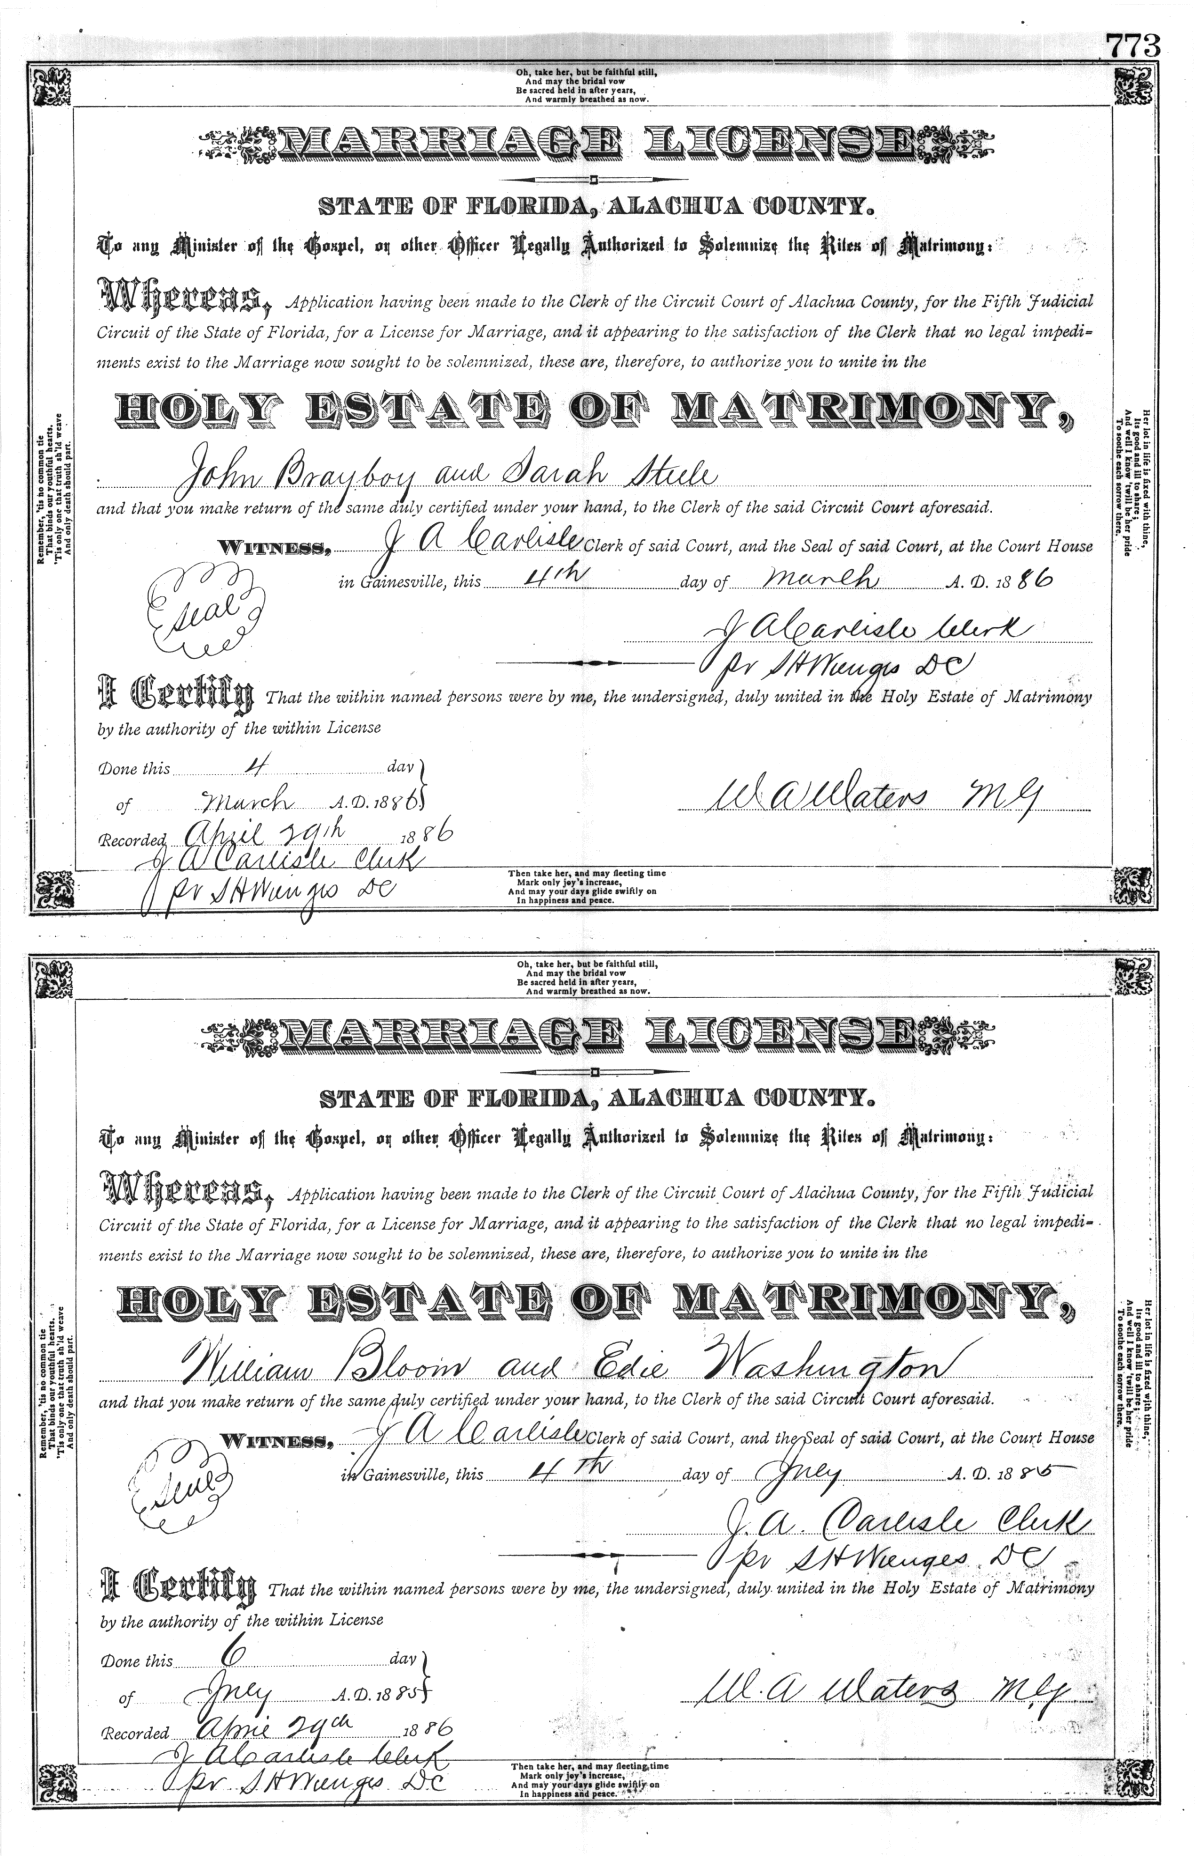 773
Oh, take her, but be faithful still,
And may the bridal vow
Be sacred held in after years,
And warmly breathed as now.
MARRIAGE LICENSE
STATE OF FLORIDA, ALACHUA COUNTY.
To any Minister of the Gospel, or other Officer Legally Authorized to Solemnize the Rites of Matrimony:
Whereas, Application having been made to the Clerk of the Circuit Court of Alachua County, for the Fifth Judicial
Circuit of the State of Florida, for a License for Marriage, and it appearing to the satisfaction of the Clerk that no legal impedi-
ments exist to the Marriage now sought to be solemnized, these are, therefore, to authorize you to unite in the
HOLY ESTATE OF MATRIMONY,
John Brayboy and Sarah Steele
and that you make return of the same duly certified under your hand, to the Clerk of the said Circuit Court aforesaid.
WITNESS, J A Carlisle Clerk of said Court, and the Seal of said Court, at the Court House
in Gainesville, this 4th day of March A. D. 1886
Seal
J A Carlisle Clerk
pr S H Wienges DC
I Certify That the within named persons were by me, the undersigned, duly united in the Holy Estate of Matrimony
by the authority of the within License
Done this 4 day
of March A. D. 1886
W A Waters M G
Recorded April 29th 1886
J A Carlisle Clerk
pr S H Wienges DC
Remember, 'tis no common tie
That binds our youthful hearts,
'Tis only one that truth sh'ld weave
And only death should part.
Her lot in life is fixed with thine,
Its good and ill to share;
And well I know 'twill be her pride
To soothe each sorrow there.
Then take her, and may fleeting time
Mark only joy's increase,
And may your days glide swiftly on
In happiness and peace.
Oh, take her, but be faithful still,
And may the bridal vow
Be sacred held in after years,
And warmly breathed as now.
MARRIAGE LICENSE
STATE OF FLORIDA, ALACHUA COUNTY.
To any Minister of the Gospel, or other Officer Legally Authorized to Solemnize the Rites of Matrimony:
Whereas, Application having been made to the Clerk of the Circuit Court of Alachua County, for the Fifth Judicial
Circuit of the State of Florida, for a License for Marriage, and it appearing to the satisfaction of the Clerk that no legal impedi-
ments exist to the Marriage now sought to be solemnized, these are, therefore, to authorize you to unite in the
HOLY ESTATE OF MATRIMONY,
William Bloom and Edie Washington
and that you make return of the same duly certified under your hand, to the Clerk of the said Circuit Court aforesaid.
WITNESS, J A Carlisle Clerk of said Court, and the Seal of said Court, at the Court House
in Gainesville, this 4th day of July A. D. 1885
Seal
J. A. Carlisle Clerk
pr S H Wienges DC
I Certify That the within named persons were by me, the undersigned, duly united in the Holy Estate of Matrimony
by the authority of the within License
Done this 6 day
of July A. D. 1885
W. A Waters M. G.
Recorded April 29th 1886
J A Carlisle Clerk
pr S H Wienges DC
Remember, 'tis no common tie
That binds our youthful hearts,
'Tis only one that truth sh'ld weave
And only death should part.
Her lot in life is fixed with thine,
Its good and ill to share;
And well I know 'twill be her pride
To soothe each sorrow there.
Then take her, and may fleeting time
Mark only joy's increase,
And may your days glide swiftly on
In happiness and peace.